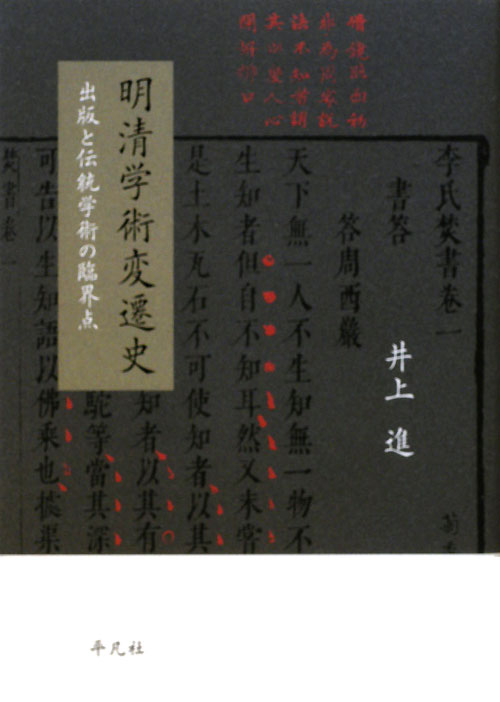 明清学術変遷史
出版と伝統学術の臨界点
井上 進
平凡社
李氏焚書卷一
書答
答周西巖
天下無一人不生知無一物不
生知者但自不知耳然又未嘗
是土木瓦石不可使知者以其
知者以其有
駝等當其深
可告以生知語以佛乘也據渠
焚書卷一